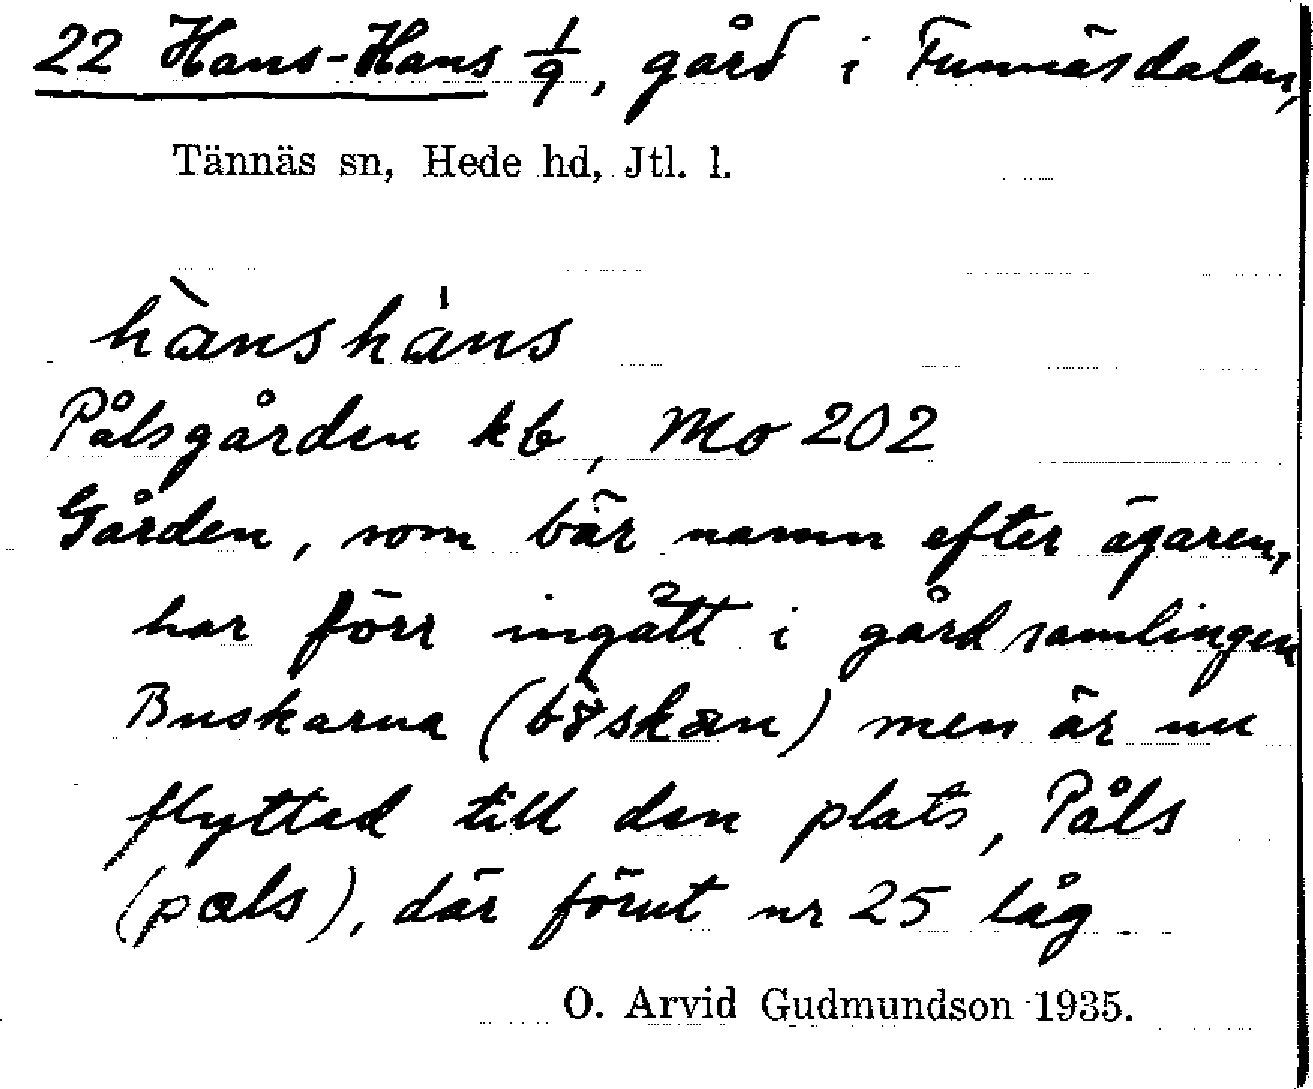 22 Hans-Hans 1/9, gård i Funnäsdalen,
Tännäs sn, Hede hd, Jtl. l.
hànsháns
Pålsgården kb, Mo 202
Gården, som bär namn efter ägaren,
har förr ingått i gårdsamlingen
Buskarna (      ) men är nu
flyttad till den plats, Påls
(pals), där förut nr 25 låg
O. Arvid Gudmundson 1935.